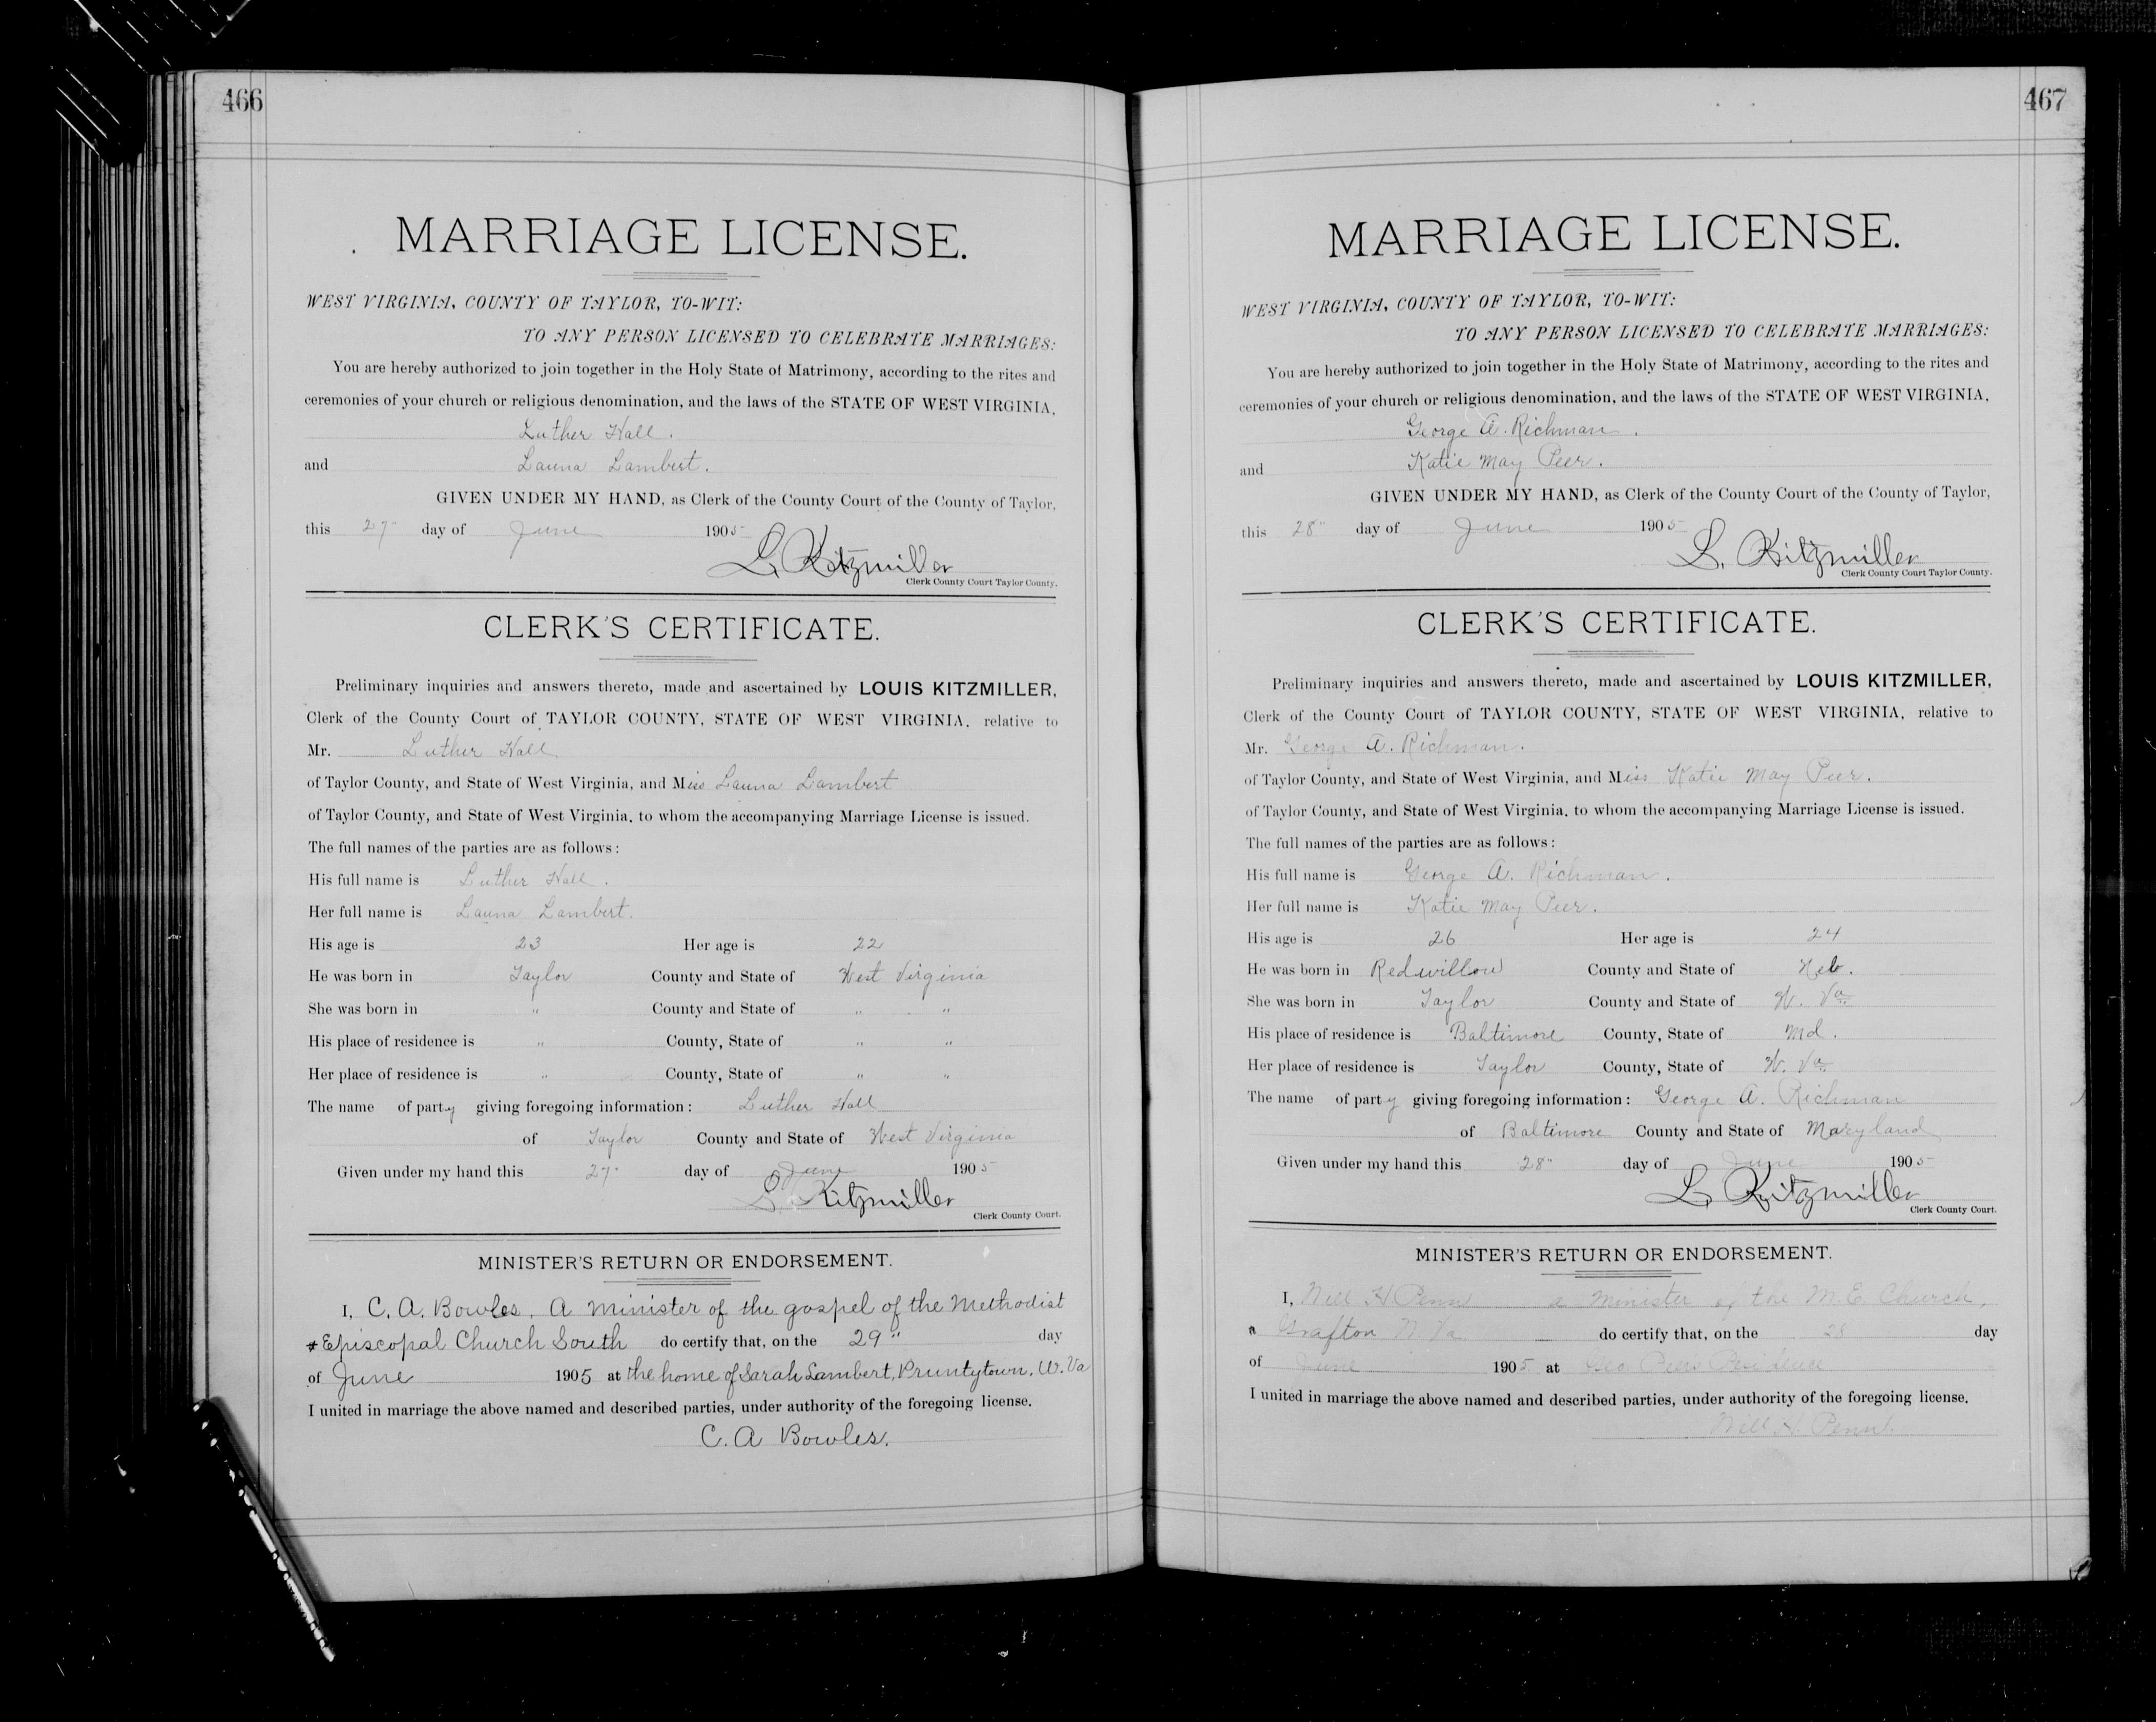 466
MARRIAGE LICENSE.
WEST VIRGINIA, COUNTY OF TAYLOR, TO-WIT:
TO ANY PERSON LICENSED TO CELEBRATE MARRIAGES:
You are hereby authorized to join together in the Holy State of Matrimony, according to the rites and
ceremonies of your church or religious denomination, and the laws of the STATE OF WEST VIRGINIA,
Luther Hall.
and Launa Lambert.
GIVEN UNDER MY HAND, as Clerk of the County Court of the County of Taylor,
this 27" day of June 1905
L. Kitzmiller
Clerk County Court Taylor County.
CLERK'S CERTIFICATE.
Preliminary inquiries and answers thereto, made and ascertained by LOUIS KITZMILLER,
Clerk of the County Court of TAYLOR COUNTY, STATE OF WEST VIRGINIA, relative to
Mr. Luther Hall
of Taylor County, and State of West Virginia, and Miss Launa Lambert
of Taylor County, and State of West Virginia, to whom the accompanying Marriage License is issued.
The full names of the parties are as follows:
His full name is Luther Hall.
Her full name is Launa Lambert.
His age is 23 Her age is 22
He was born in Taylor County and State of West Virginia
She was born in " County and State of " "
His place of residence is " County, State of " "
Her place of residence is " County, State of " "
The name of party giving foregoing information: Luther Hall
of Taylor County and State of West Virginia
Given under my hand this 27" day of June 1905
L. Kitzmiller
Clerk County Court.
MINISTER'S RETURN OR ENDORSEMENT.
I, C. A. Bowles, A minister of the gospel of the Methodist
Episcopal Church South do certify that, on the 29" day
of June 1905 at the home of Sarah Lambert, Pruntytown, W. Va
I united in marriage the above named and described parties, under authority of the foregoing license.
C. A Bowles.
467
MARRIAGE LICENSE.
WEST VIRGINIA, COUNTY OF TAYLOR, TO-WIT:
TO ANY PERSON LICENSED TO CELEBRATE MARRIAGES:
You are hereby authorized to join together in the Holy State of Matrimony, according to the rites and
ceremonies of your church or religious denomination, and the laws of the STATE OF WEST VIRGINIA,
George A. Richman.
and Katie May Peer.
GIVEN UNDER MY HAND, as Clerk of the County Court of the County of Taylor,
this 28" day of June 1905
L. Kitzmiller
Clerk County Court Taylor County.
CLERK'S CERTIFICATE.
Preliminary inquiries and answers thereto, made and ascertained by LOUIS KITZMILLER,
Clerk of the County Court of TAYLOR COUNTY, STATE OF WEST VIRGINIA, relative to
Mr. George A. Richman.
of Taylor County, and State of West Virginia, and Miss Katie May Peer.
of Taylor County, and State of West Virginia, to whom the accompanying Marriage License is issued.
The full names of the parties are as follows:
His full name is George A. Richman.
Her full name is Katie May Peer.
His age is 26 Her age is 24
He was born in Redwillow County and State of Neb.
She was born in Taylor County and State of W. Va
His place of residence is Baltimore County, State of Md.
Her place of residence is Taylor County, State of W. Va
The name of party giving foregoing information: George A. Richman
of Baltimore County and State of Maryland
Given under my hand this 28" day of June 1905
L. Kitzmiller
Clerk County Court.
MINISTER'S RETURN OR ENDORSEMENT.
I, Will H Penn a Minister of the M. E. Church,
Grafton W. Va do certify that, on the 28 day
of June 1905 at Geo Peers Residence
I united in marriage the above named and described parties, under authority of the foregoing license.
Will H. Penn.